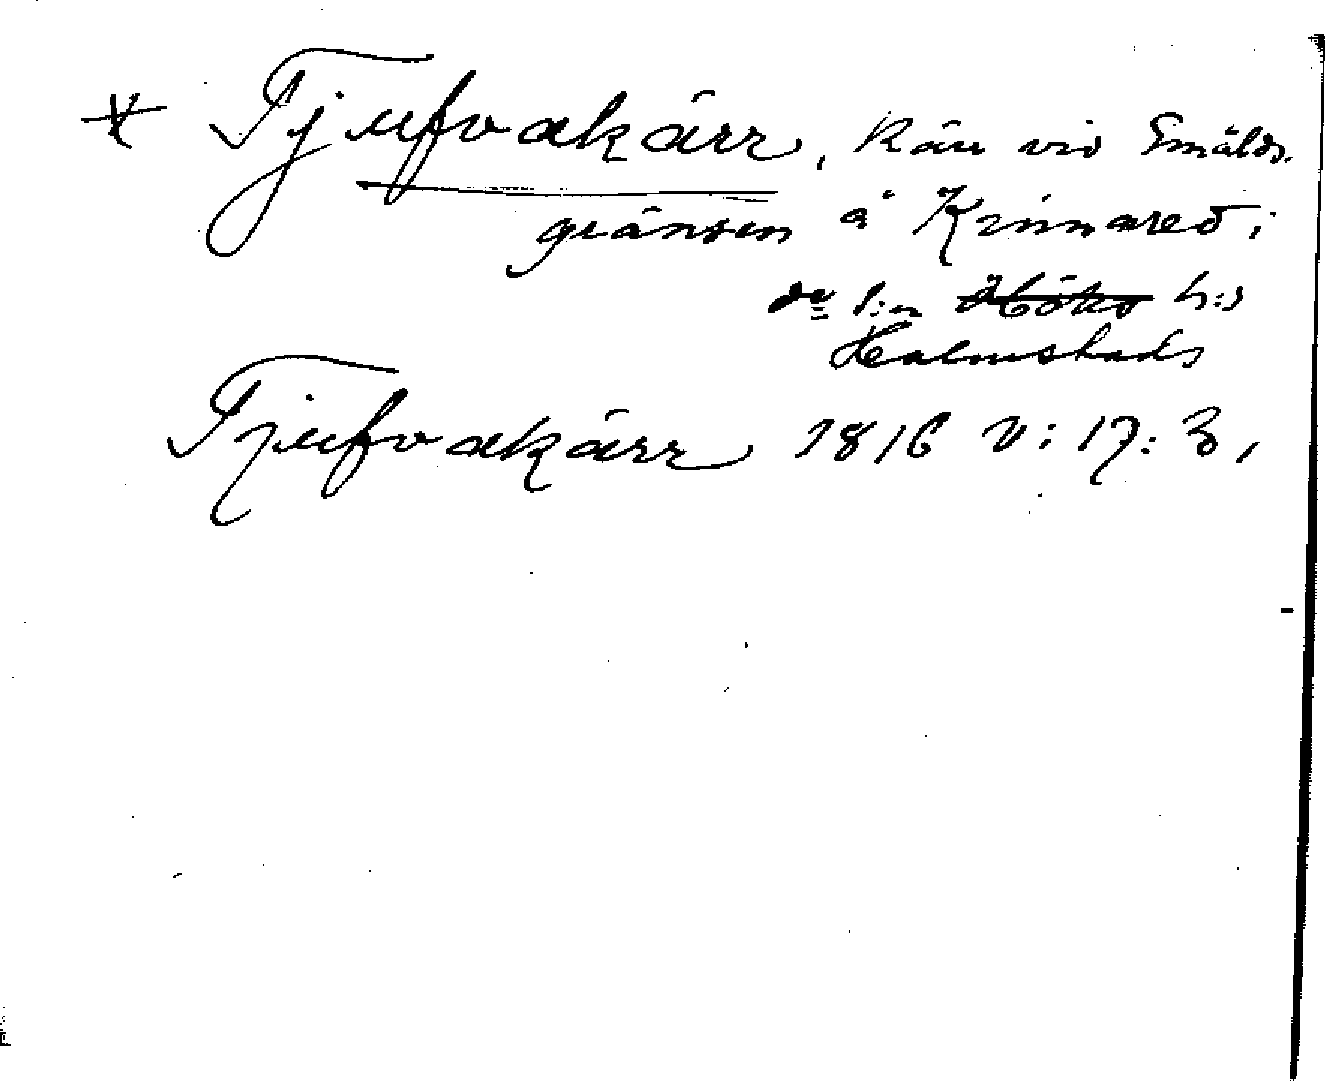 * Tjufvakärr, kärr vid Smålds.
gränsen å Kinnared i
s:n Höks h:d
Halmstads
Tjufvakärr 1816 V: 17: 3,